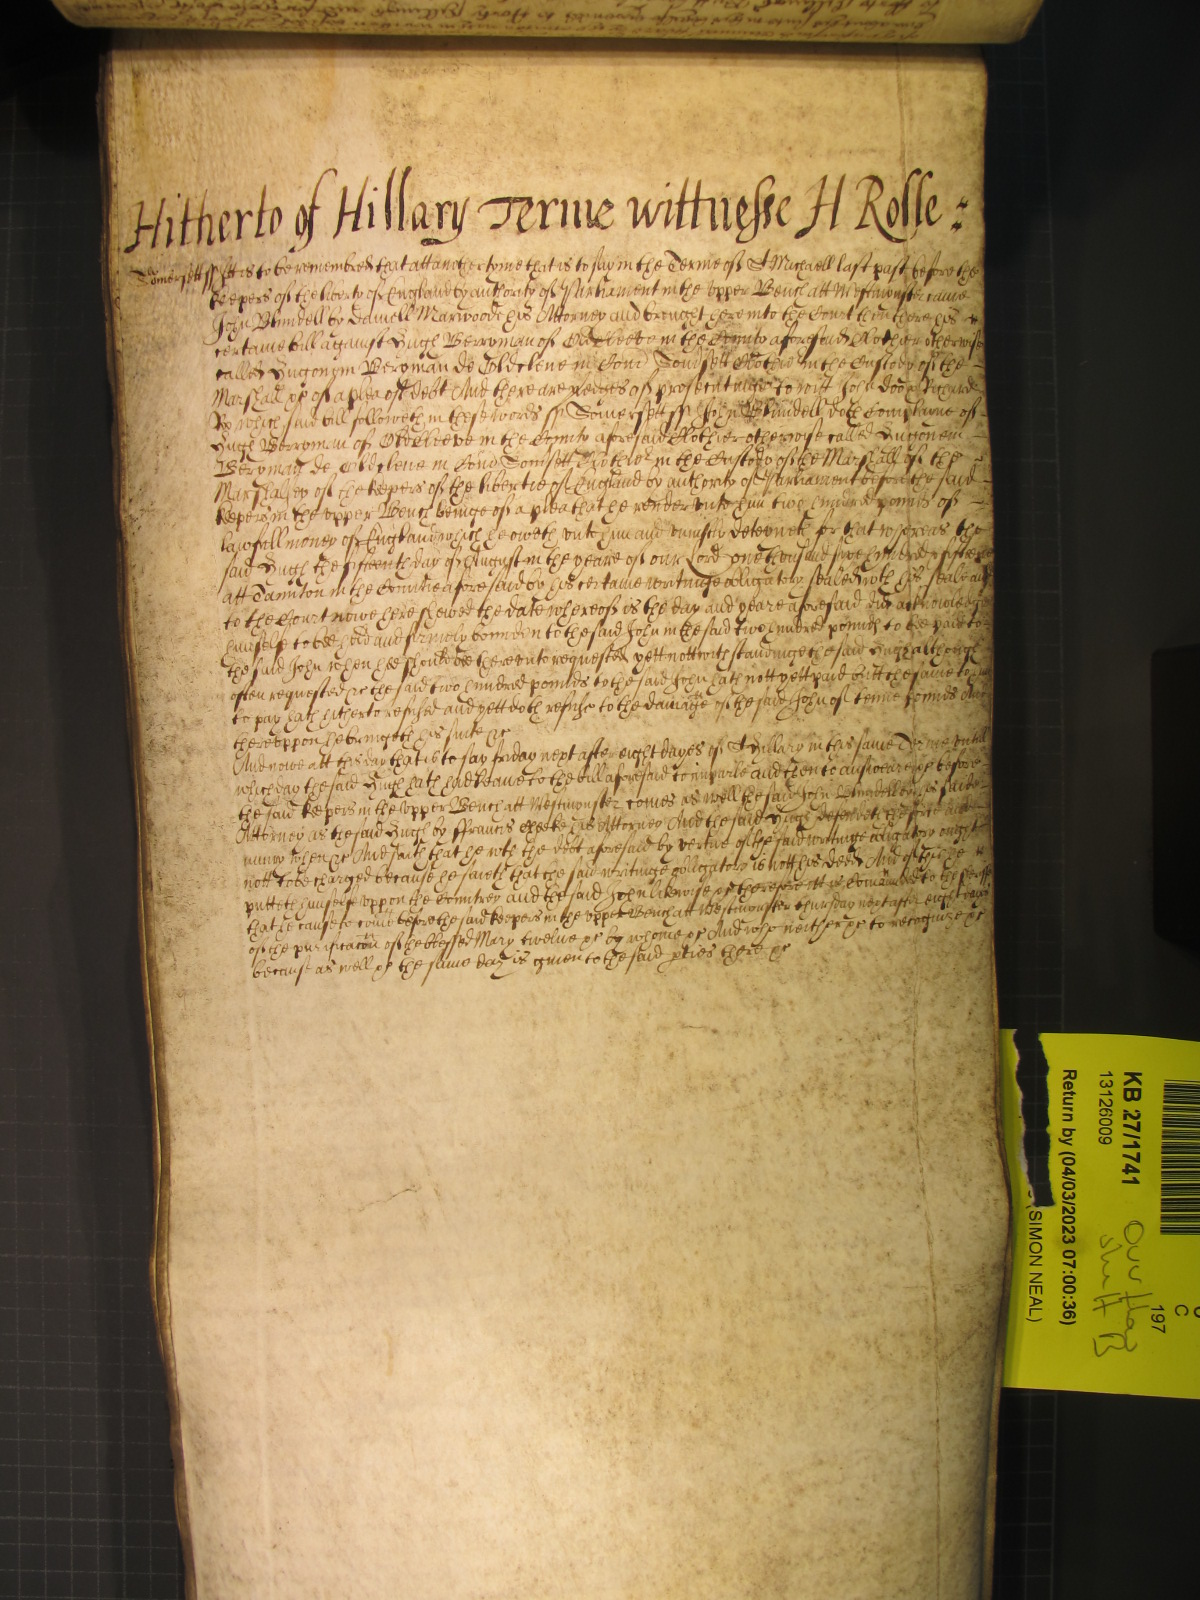 Hitherto of Hillary Terme wittnesse H Rolle :
Somersett ss Itt is to be remembred that att another tyme that is to say in the Terme of St Michaell last past before the
keepers of the liberty of England by authority of Parliament in the upper Bench att Westminster came
John Blundell by Daniell Marwood his Attorney and brought here into the Court then there his
certaine bill against Hugh Berryman of Oldcleeve in the County aforesaid Clothier otherwise
called Hugonem Beryman de Oldcleve in Com Somsett Clothier in the Custody of the
Marshall &c of a plea of debt And there are pledges of prosecutinge to witt John Doo & Richard
Ro which said bill followeth in these words ss Somersett ss John Blundell doth Complayne of
Hugh Berryman of Oldcleeve in the County aforesaid Clothier otherwise called Hugonem
Beryman de Oldcleve in Com Somsett Clothier in the Custody of the Marshall of the
Marshalsey of the keepers of the libertie of England by authority of Parliament before the said
keepers in the upper Bench beinge of a plea that he render unto him two hundred pounds of
lawfull money of England which he oweth unto him and uniustly deteyneth for that whereas the
said Hugh the fifteenth day of August in the yeare of our Lord one thousand six hundred
att Taunton in the Countie aforesaid by his certaine writinge obligatory sealed wth his seale and
to the Court nowe here shewed the date whereof is the day and yeare aforesaid did acknowledge
himselfe to bee held and firmely bounden to the said John in the said two hundred pounds to bee paid to
the said John when hee should bee thereunto requested yett nottwithstandinge the said Hugh although
often requested &c the said two hundred pounds to the said John hath nott yett paid butt the same to him
to pay hath hitherto refused and yett doth refuse to the damage of the said John of tenne pounds And
thereuppon he bringeth his suite &c
And nowe att this day that is to say fryday next after eight dayes of St Hillary in this same Terme untill
which day the said Hugh hath had leave to the bill aforesaid to imparle and then to answeare &c before
the said keepers in the upper Bench att Westminster comes as well the said John Blundell by his said
Attorney as the said Hugh by Francis his Attorney And the said Hugh defendeth the force and
iniury when &c And saith that he wth the debt aforesaid by vertue of the said writinge obligatory ought
nott to be charged because he saieth that the said writinge obligatory is nott his deede And of this he
putteth himselfe uppon the Countrey and the said John likewise &c therefore itt is Comanded to the Sheriffe
that he cause to come before the said keepers in the upper Bench att Westminster thursday next after eight dayes
of the purificacon of the blessed Mary twelve &c by whome &c And who neither &c to recognize &c
because as well &c the same day is given to the said pties there &c
KB 27/1741
13126009
Return by (04/03/2023 07:00:36)
(SIMON NEAL)
197
C